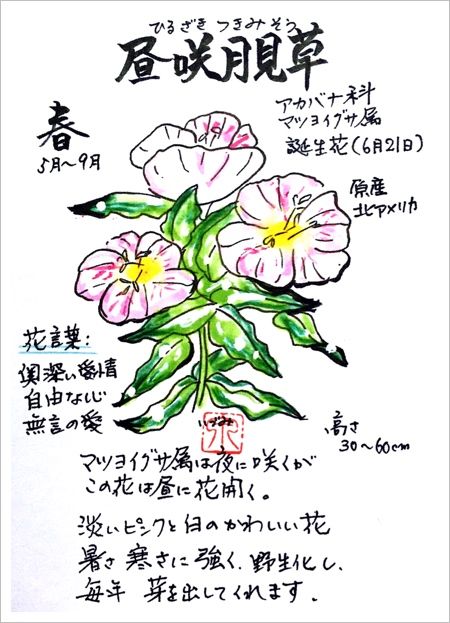 ひるざき つきみそう
昼咲月見草
アカバナ科
マツヨイグサ属
誕生花(6月21日)
春
5月〜9月
原産
北アメリカ
花言葉:
奥深い愛情
自由な心
無言の愛
いづみ
高さ
30〜60cm
マツヨイグサ属は夜に咲くが
この花は昼に花開く。
淡いピンクと白のかわいい花
暑さ 寒さに強く、野生化し、
毎年 芽を出してくれます.